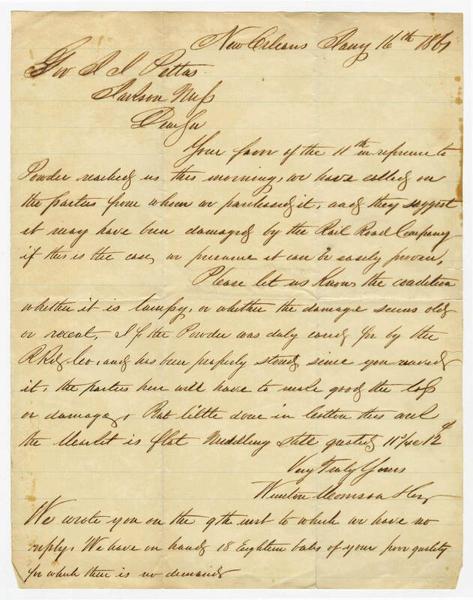 New Orleans Jany 16th 1861
Gov J. J. Pettus
Jackson Miss
Dear Sir
Your favor of the 11th in reference to
Powder reached us this morning, we have called on
the parties from whom we purchased it, and they suggest
it may have been damaged by the Rail Road Company
if this is the case, we presume it can be easily proven,
Please let us know the condition
whether it is lumpy, or whether the damage seems old
or recent, If the Powder was duly cared for by the
R Rd Co, and has been properly stored since you received
it, the parties here will have to make good the loss
or damage, But little done in Cotton this week
the Market is flat Middling still quoted
Very Truly Yours
We wrote you on the 9th inst to which we have no
reply. We have on hand 18 Eighteen bales of your poor quality
for which there is no demand